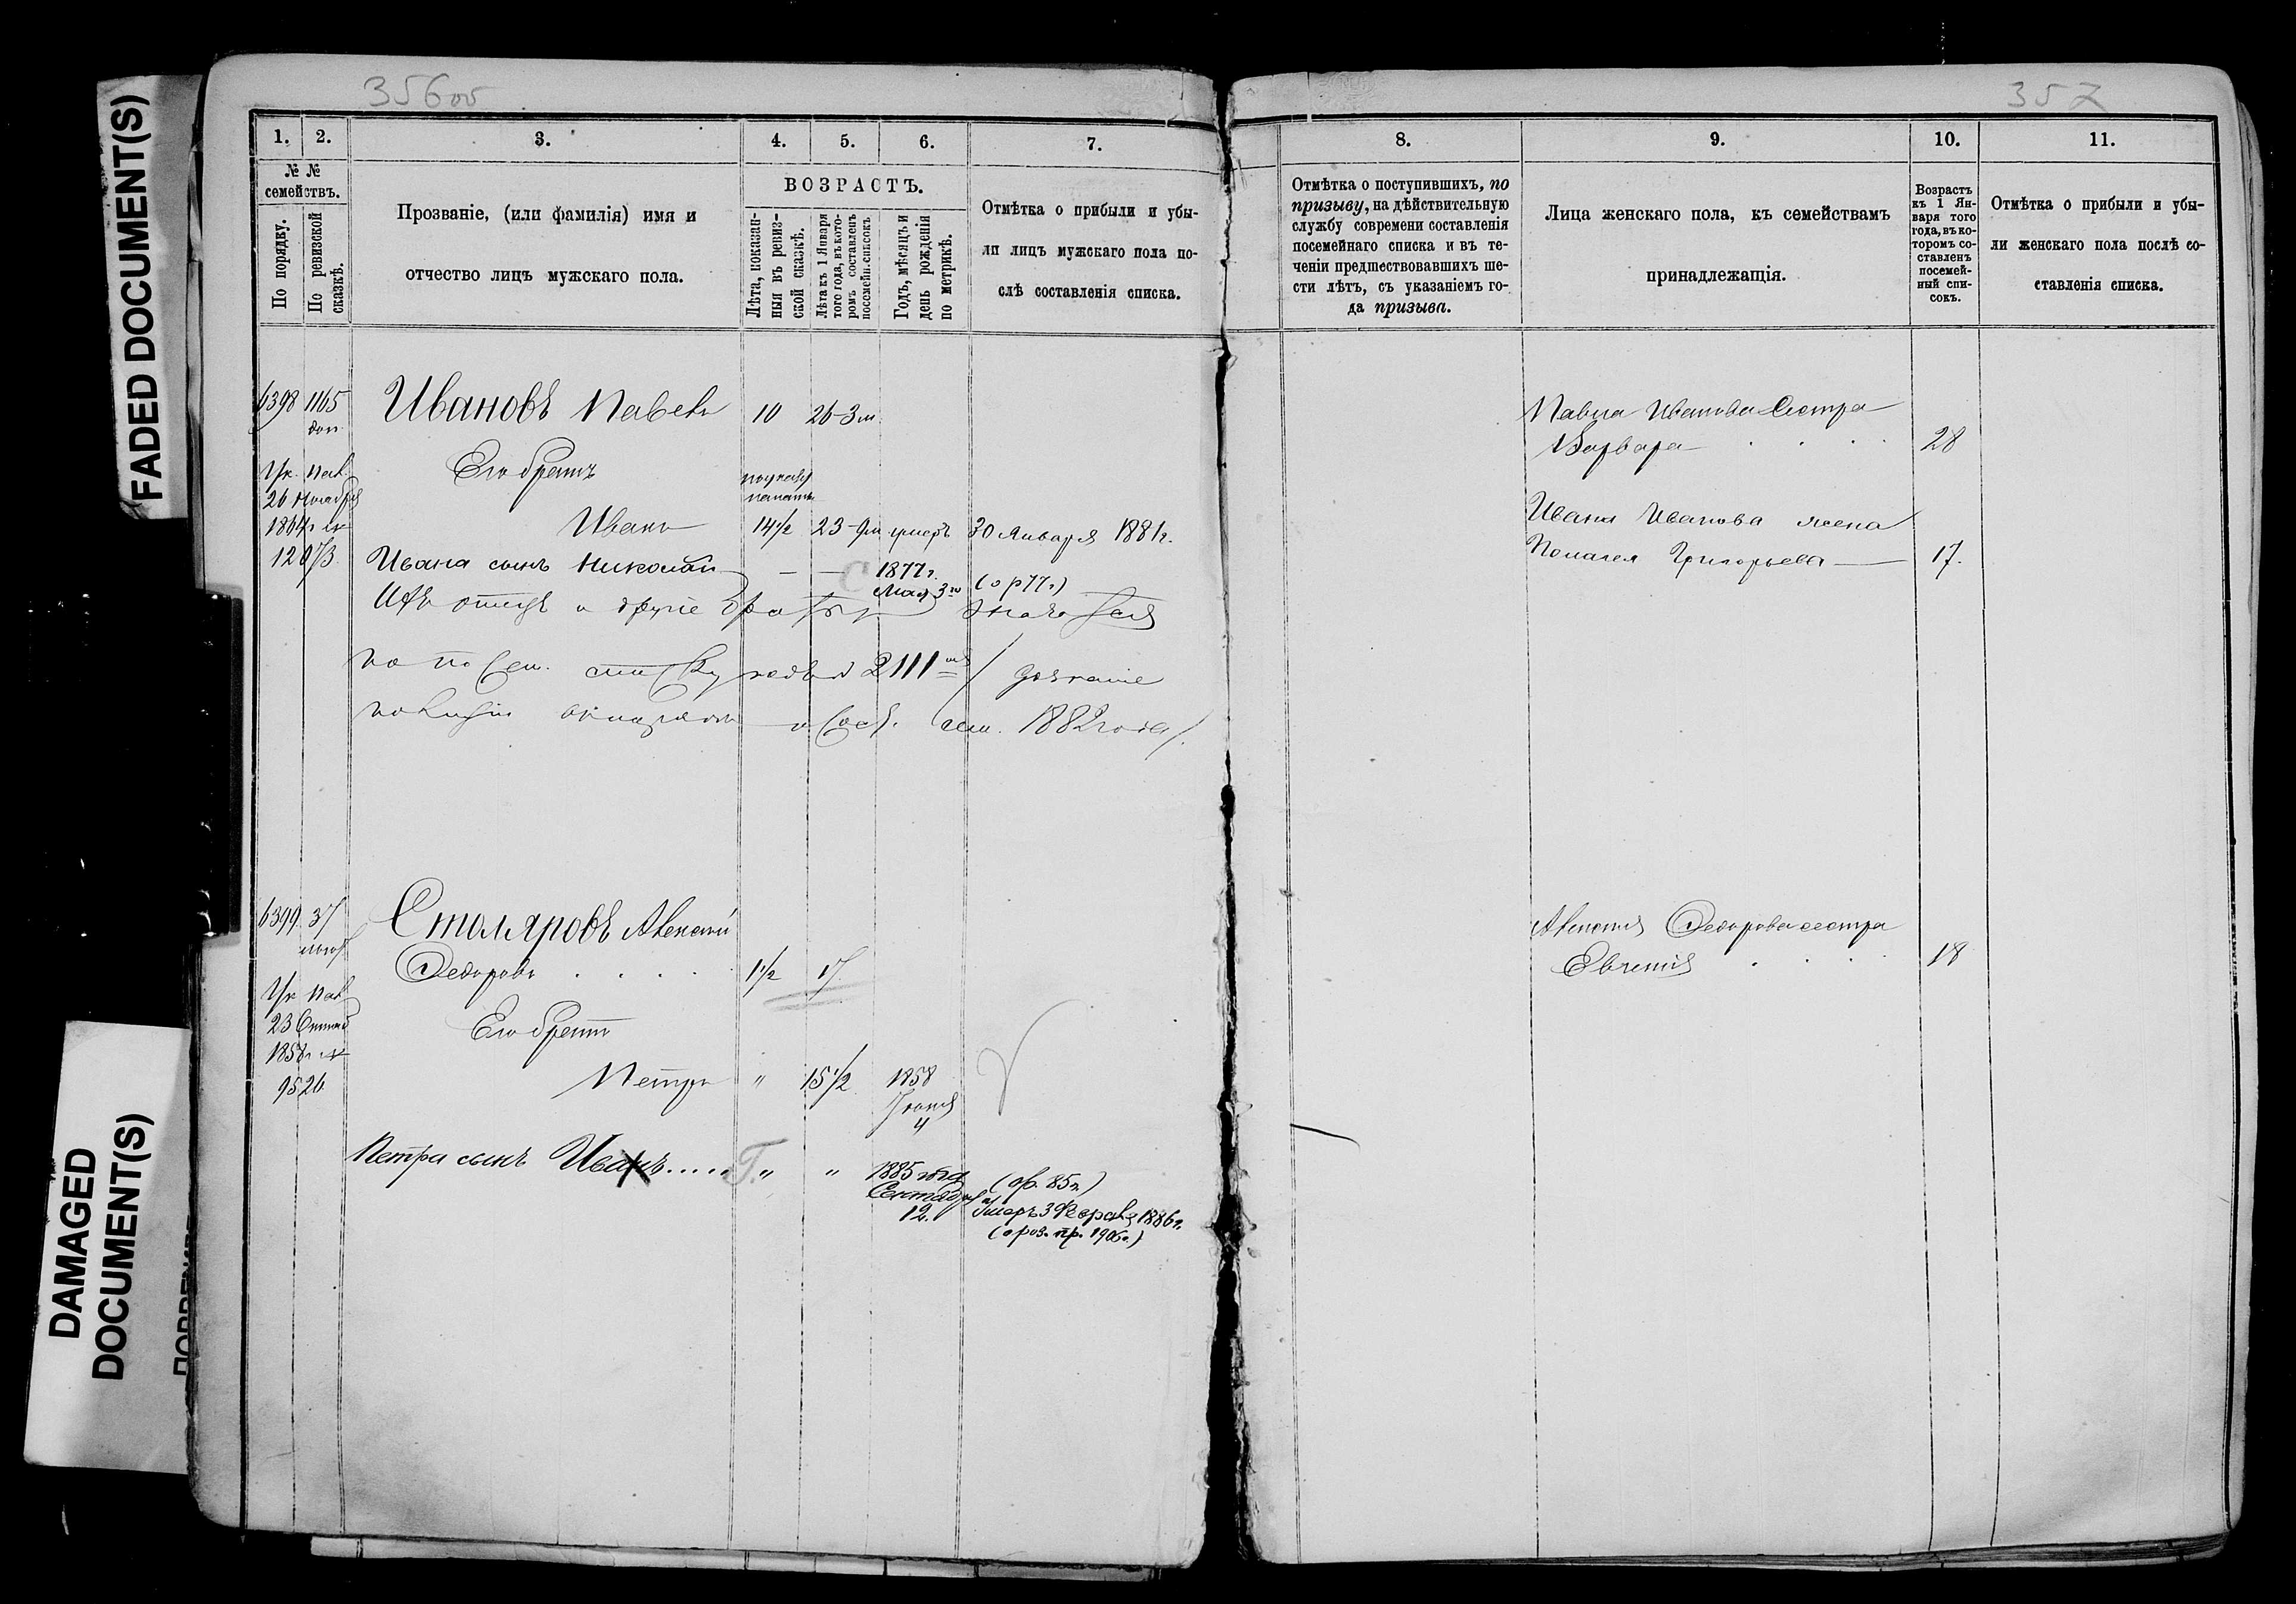 FADED DOCUMENT(S)
DAMAGED
DOCUMENT(S)
356об
1. 2. 3. 4. 5. 6. 7.
№ №
семействъ.
По порядку.
По ревизской
сказкѣ.
Прозваніе, (или фамилія) имя и
отчество лицъ мужскаго пола.
ВОЗРАСТЪ.
Лѣта, показан-
ныя въ ревиз-
ской сказкѣ.
Лѣта къ 1 Января
того года, въ кото-
ромъ составленъ
посемейн. списокъ
Годъ, мѣсяцъ и
день рожденія
по метрикѣ.
Отмѣтка о прибыли и убы-
ли лицъ мужскаго пола по-
слѣ составленія списка.
6398 1165 Ивановъ Павелъ 10 26-3м
доп.
Ук. Пал.
Его братъ
26 Ноября
1864г. №
Иванъ 14 1/2 23-9м умеръ 30 Января 1881г.
12073
Ивана сынъ Николай — — 1877г.
Мая 3го (о р 77г.)
Ихъ отецъ и другіе братья
по посем. списку подъ № 2111
1882 года
6399 37 Столяровъ Алексѣй
Федоровъ . . . . 1 1/2 17
Ук. Пал.
23
1858г. №
9526
Его братъ
Петръ " 15 1/2 1858
Іюня
4
Петра сынъ Иванъ..... Г. " " 1885 года (об. 85г.)
Сентября
12.
Умеръ 3 Февраля 1886г.
(о роз. пр. 1906г.)
357
8. 9. 10. 11.
Отмѣтка о поступившихъ, по
призыву, на дѣйствительную
службу современи составленія
посемейнаго списка и въ те-
ченіи предшествовавшихъ ше-
сти лѣтъ, съ указаніемъ го-
да призыва.
Лица женскаго пола, къ семействамъ
принадлежащія.
Возрастъ
къ 1 Ян-
варя того
года, въ ко-
торомъ со-
ставленъ
посемей-
ный спи-
сокъ.
Отмѣтка о прибыли и убы-
ли женскаго пола послѣ со-
ставленія списка.
Павла Иванова Сестра
Варвара . . . 28
Ивана Иванова жена
Пелагея Григорьева — 17.
Алексѣя Федорова сестра
Евгенія . . . 18